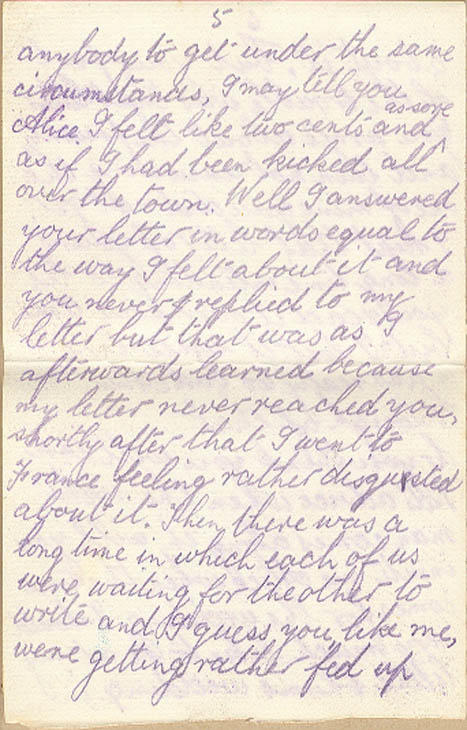 5
anybody to get under the same
circumstances, I may tell you
Alice I felt like two cents and as sore
as if I had been kicked all
over the town. Well I answered
your letter in words equal to
the way I felt about it and
you never replied to my
letter but that was as I
afterwards learned because
my letter never reached you,
shortly after that I went to
France feeling rather disgusted
about it. Then there was a
long time in which each of us
were waiting for the other to
write and I guess you, like me,
were getting rather fed up